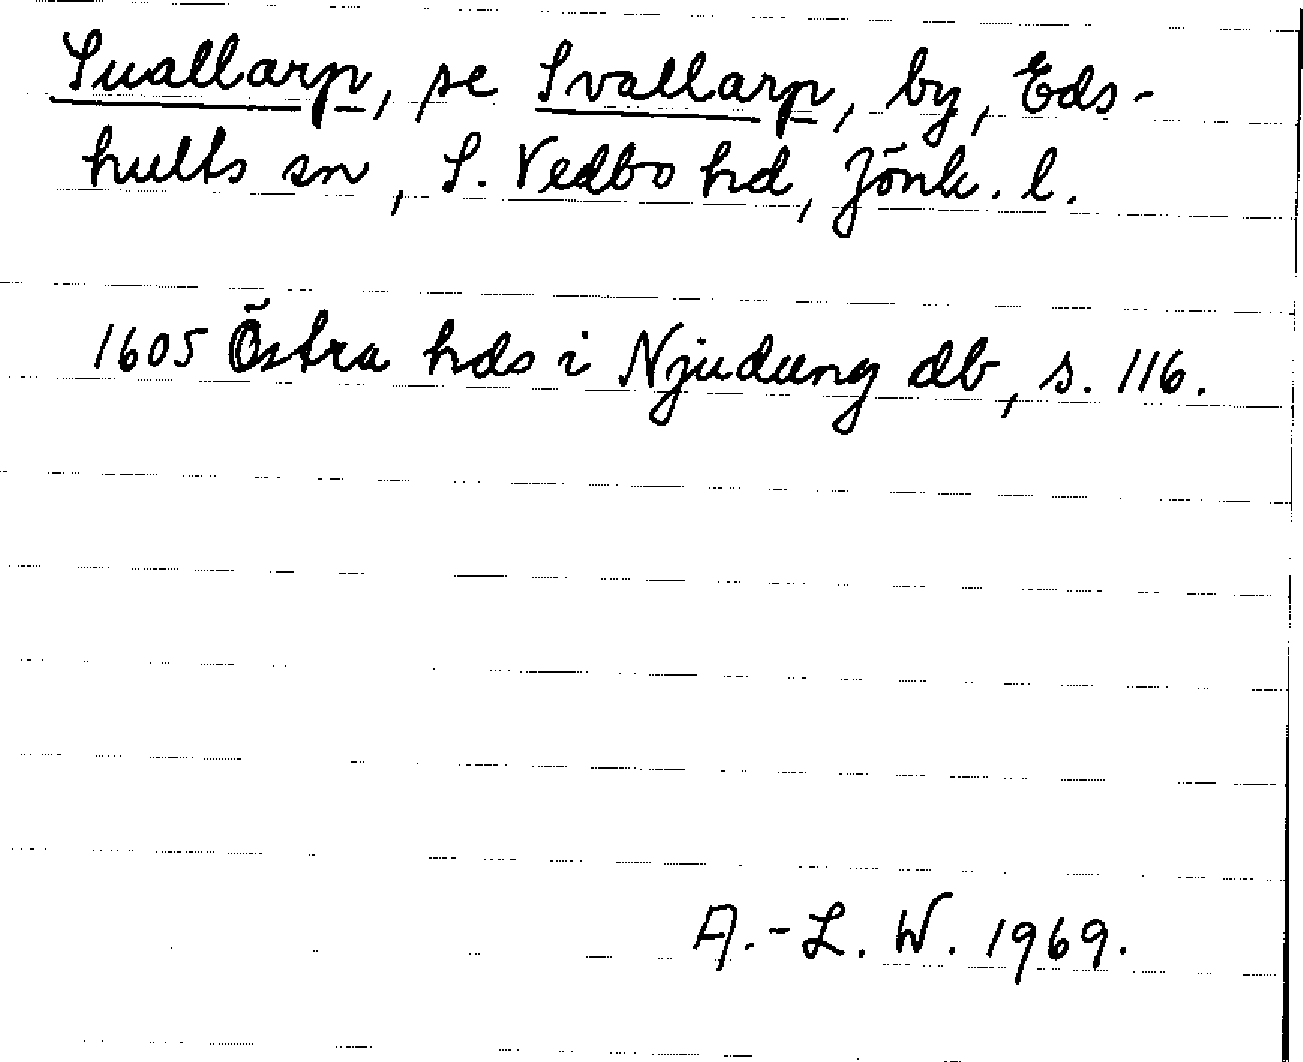 Suallarp, se Svallarp, by, Eds-
hults sn, S. Vedbo hd, Jönk. l.
1605 Östra hds i Njudung db, s. 116.
A.-L. W. 1969.